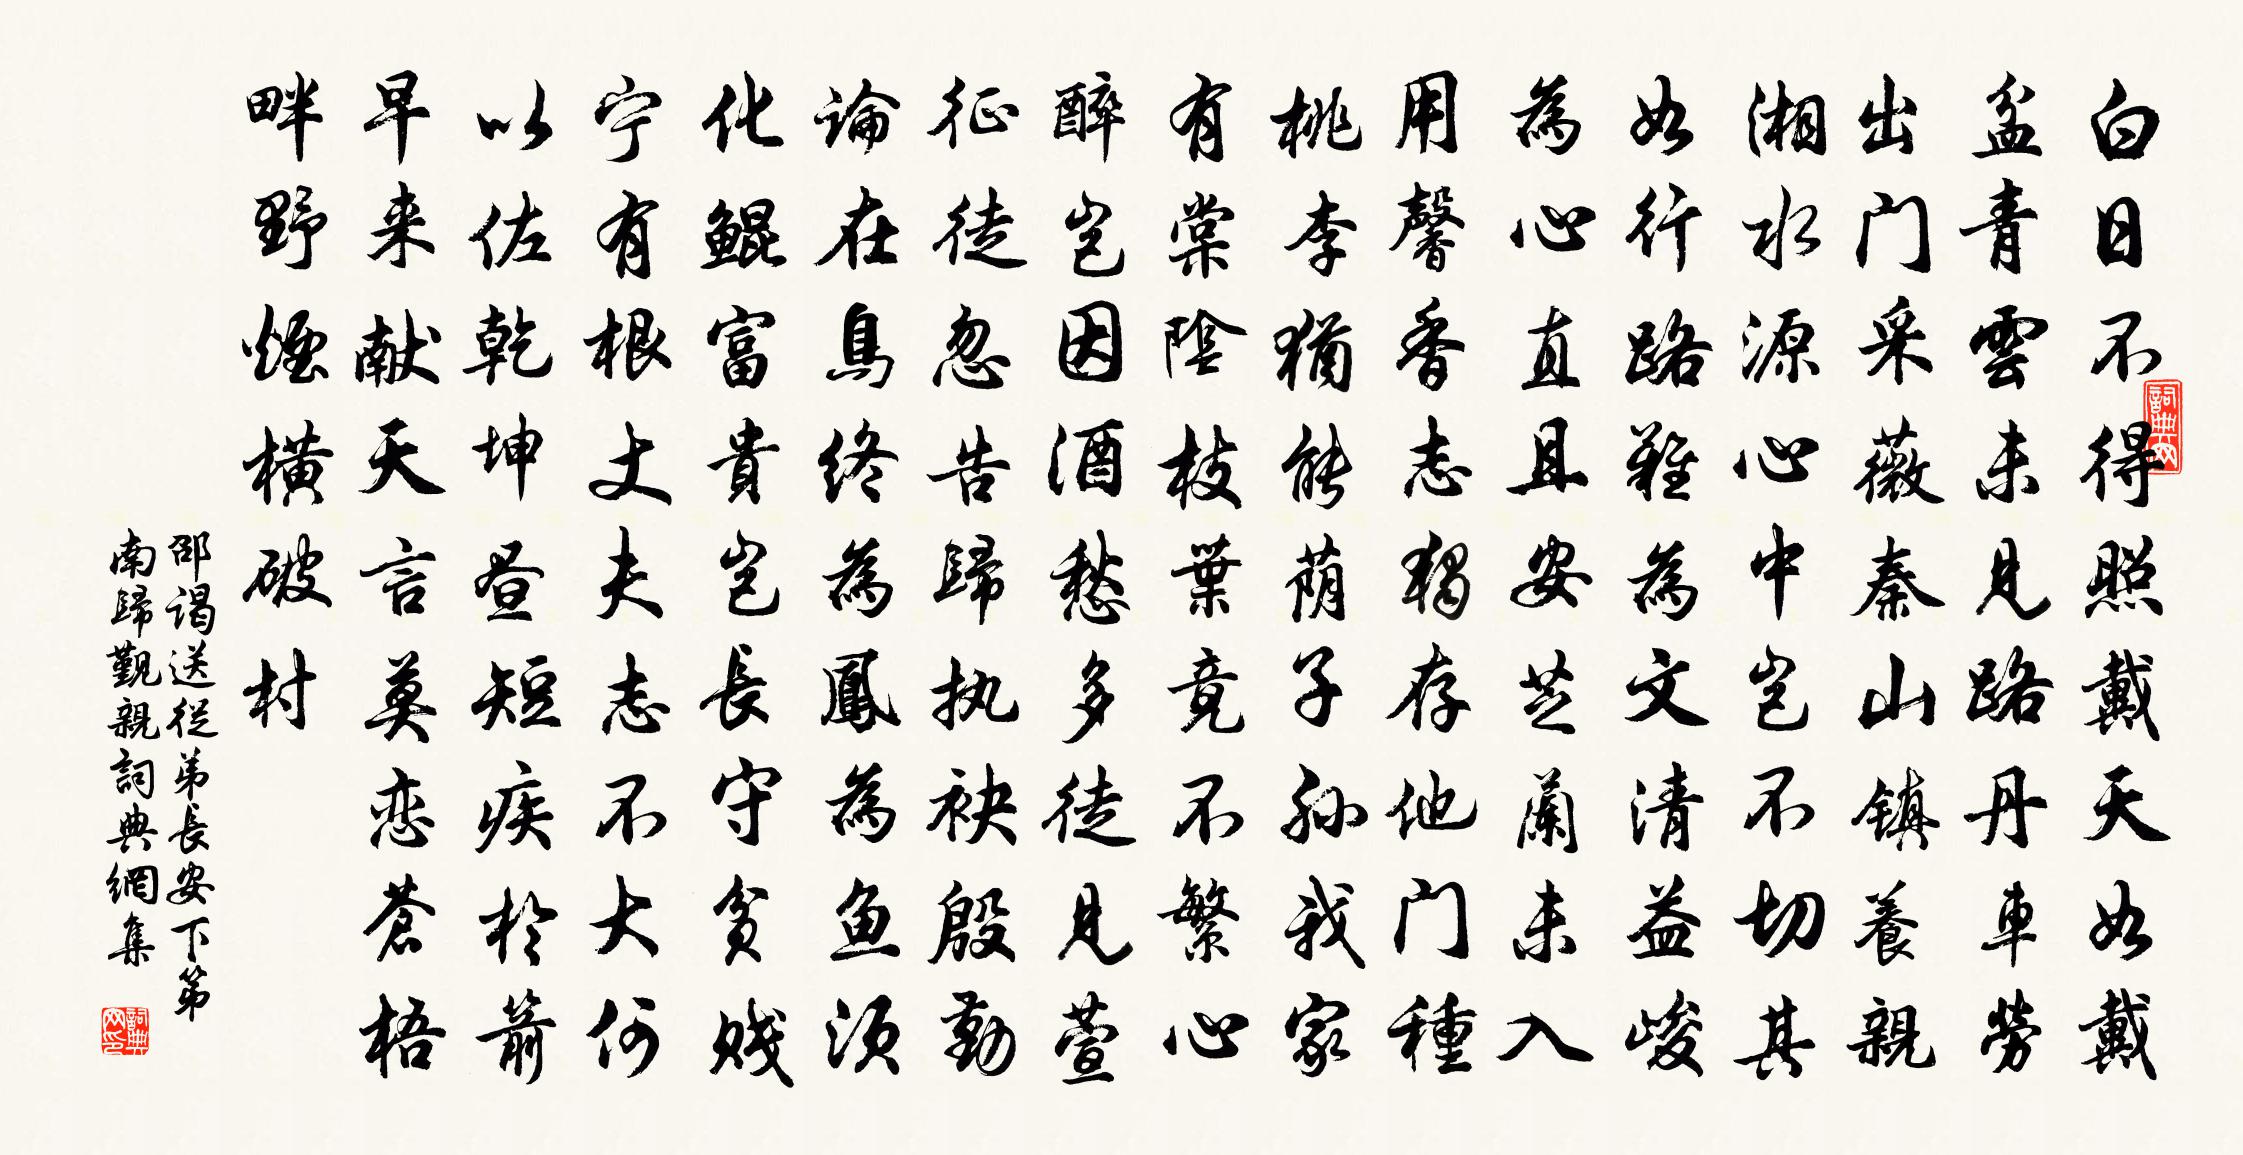 白日不得照戴天如戴
盆青雲未見路丹車勞
出门采薇秦山镇養親
湘水源心中岂不切其
如行路難為文清益峻
為心直且安芝蘭未入
用馨香志獨存他门種
桃李猶能荫子孙我家
有棠陰枝葉竟不繁心
醉岂因酒愁多徒見萱
征徒忽告歸执袂殷勤
論在鳥終為鳳為鱼须
化鲲富貴岂長守貧贱
宁有根丈夫志不大何
以佐乾坤昼短疾於箭
早来献天言莫恋蒼梧
畔野煙橫破村
邵谒送從弟長安下第
南歸觐親詞典網集
詞典网
詞典网印